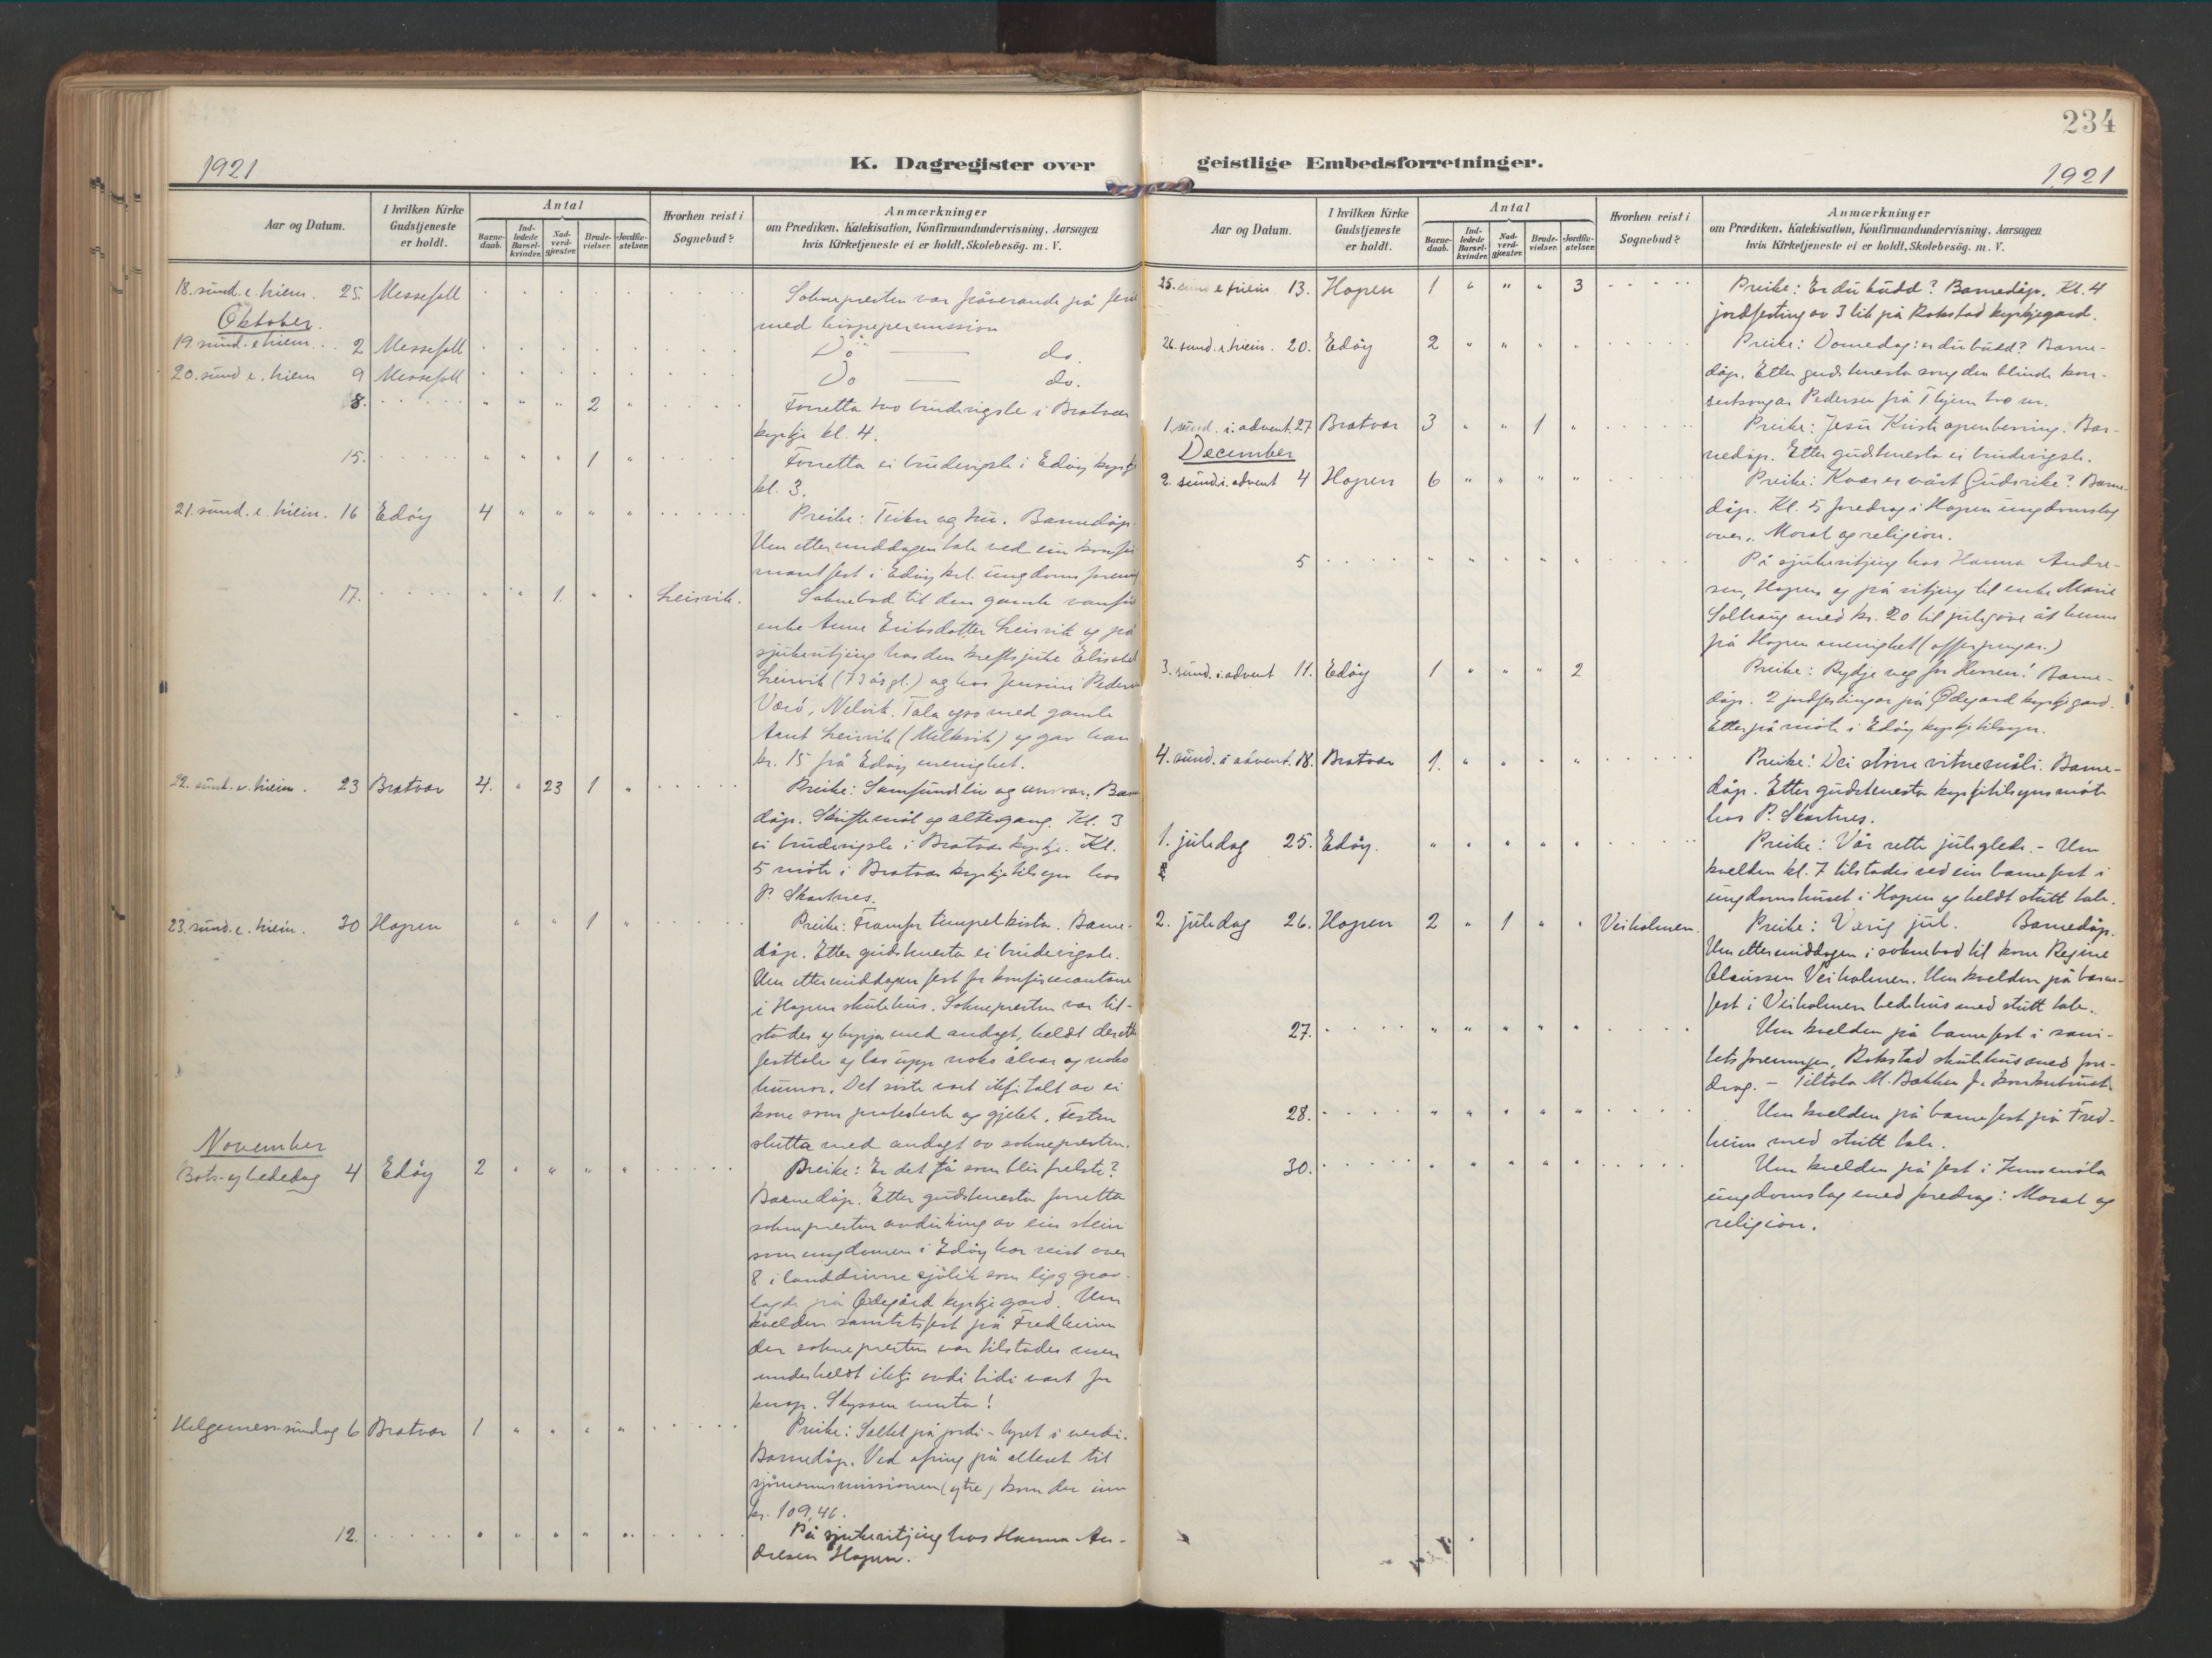 234
1921
K. Dagregister over
geistlige Embedsforretninger.
1921
Aar og Datum.
I hvilken Kirke Gudstjeneste er holdt.
Antal
Barne-daab.
Ind-ledede Barsel-kvinder.
Nad-verd-gjæster.
Brude-vielser.
Jordfæ-stelser.
Hvorhen reist i Sognebud?
Anmærkninger
om Prædiken, Katekisation, Konfirmandundervisning, Aarsagen
hvis Kirketjeneste ei er holdt, Skolebesög. m. V.
18. sund. e. triein. 25. Messefall
Soknepresten var fråverande på
med bispepermission
Oktober.
19. sund. e. triein. 2 Messefall Do — do.
20. sund e. triein 9 Messefall Do — do.
8. 2 Forretta two brudevigsle i Bratvær
kyrkje kl. 4.
15. 1 Forretta ei brudevigsle i Edöy
kl. 3.
21. sund. e. triein. 16 Edöy 4 Preike: Teikn og tru. Barnedåp.
Um ettermiddagen tale ved ein
i Edöy krl. ungdoms
17. 1. Leirvik. Soknebod til den gamle
enke Anne Eriksdotter Leirvik og på
sjukevitjing hos den kreftsjuke
Leirvik (73 år gl.) og hos Jensine
Nelvik. Tala ogso med gamle
Leirvik og gav han
kr. 15 frå Edöy menighet.
22. sund. e. triein. 23 Bratvær 4. 23 1 Preike: Samfundsliv og ansvar.
dåp. Skriftemål og altergang. Kl. 3
ei brudevigsle i Bratvær kyrkje. Kl.
5 möte i Bratvær kyrkjetilsyn hos
P. Skartnes.
23. sund. e. triein. 30 Hopen 1 Preike: Framfor tempelkista. Barne-
dåp. Etter gudstenesta ei brudevigsle.
Um ettermiddagen fest for konfirmantane
i Hopen skulehus. Soknepresten var til-
stades og bygja med andagt, heldt
festtale og las upp noko ålvor og noko
humor. Det siste vart ikkje talt av ei
kone som protesterte og gjekk. Festen
slutta med andagt av soknepresten.
November
Bots- og bededag 4 Edöy 2 Preike: Er det få som blir frelste?
Barnedåp. Etter gudstenesta forretta
soknepresten avduking av ein stein
som ungdomen i Edöy har reist over
8 ilanddrivne sjölik som ligg grav-
lagde på Ödegård kyrkjegard. Um
kvelden sanitetsfest på Fredheim
der soknepresten var tilstades men
underheldt ikkje avdi tidi vart for
knap. Skyssen venta!
Helgemess-sundag 6 Bratvær 1 Preike: Saltet på jordi – lyset i verdi.
Barnedåp. Ved ofring på alteret til
sjömannsmissionen (ytre) kom der inn
kr. 109,46.
12. På sjukevitjing hos Hanna An-
dresen Hopen.
Aar og Datum.
I hvilken Kirke Gudstjeneste er holdt.
Antal
Barne-daab.
Ind-ledede Barsel-kvinder.
Nad-verd-gjæster.
Brude-vielser.
Jordfæ-stelser.
Hvorhen reist i Sognebud?
Anmærkninger
om Prædiken, Katekisation, Konfirmandundervisning, Aarsagen
hvis Kirketjeneste ei er holdt, Skolebesög. m. V.
25. sund e triein 13. Hopen 1 3 Preike: Er du budd? Barnedåp. Kl. 4
jordfesting av 3 lik på Rokstad kyrkjegard.
26. sund. e. triein. 20. Edöy 2 Preike: Domedag: er du budd? Barne-
dåp. Etter gudstenesta song den blinde kon-
sertsongar Pedersen frå T.hjem two nr.
1. sund. i. advent. 27. Bratvær 3 1 Preike: Jesu Krists openberring. Bar-
nedåp. Etter gudstenesta ei brudevigsle.
December
2. sund. i. advent 4 Hopen 6 Preike: Kvar er vårt Gudsrike? Barne-
dåp. Kl. 5 foredrag i Hopen ungdomslag
over „Moral og religion.
5 På sjukevitjing hos Hanna Andre-
sen, Hopen og på vitjing til enke Marie
Solhaug med kr. 20 til julegåve åt henne
frå Hopen menighet (offerpengar.)
3. sund. i. advent 11. Edöy 1 2 Preike: Rydje veg for Herren! Barne-
dåp. 2 jordfestingar på Ödegard kyrkjegard.
Etterpå möte i Edöy kyrkjetilsyn.
4. sund. i advent. 18. Bratvær 1. Preike: Dei större vitnemåli. Barne-
dåp. Etter gudstenesta kyrkjetilsynsmöte
hos P. Skartnes.
1. juledag 25. Edöy. Preike: Vår rette juleglede. – Um
kvelden kl. 7 tilstades ved ein barnefest i
ungdomshuset i Hopen og heldt stutt tale.
2. juledag 26. Hopen 2 1 Veiholmen. Preike: Verig jul. Barnedåp.
Um ettermiddagen i soknebod til kone Regine
Olaussen Veiholmen. Um kvelden på barne-
fest i Veiholmen bedehus med stutt tale.
27. Um kvelden på barnefest i sani-
tetsforeningen, Rokstad skulehus med fore-
drag. – Tiltala M. Bakken
28. Um kvelden på barnefest på Fred-
heim med stutt tale.
30. Um kvelden på fest i
ungdomslag med foredrag: Moral og
religion.